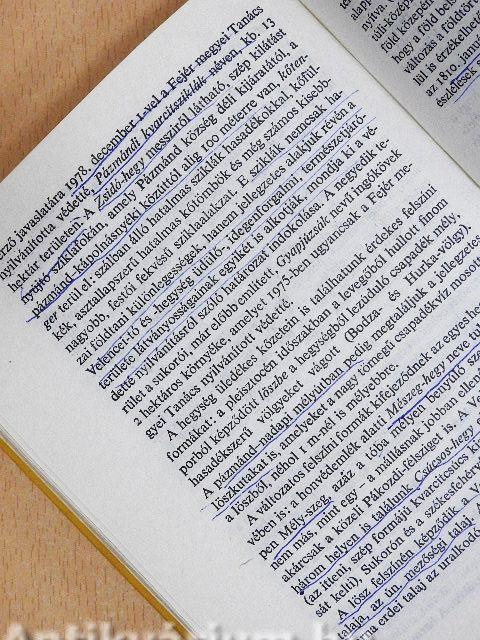 őrző javaslatára 1978. december 1-jével a Fejér megyei Tanács
nyilvánította védetté, Pázmándi kvarcitsziklák néven, kb. 13
hektár területen. A Zsidó-hegy messziről látható, szép kilátást
nyújtó sziklafokán, amely Pázmánd község déli kijáratától, a
pázmánd-kápolnásnyéki közúttól alig 100 méterre van, kőren-
geteg terül el: szálban álló hatalmas sziklák hasadékokkal, kőfül-
kék, asztallapszerű hatalmas kőtömbök és még számos kisebb-
nagyobb, festői fekvésű sziklaalakzat. E sziklák nemcsak ha-
zai földtani különlegességek, hanem jellegzetes alakjuk révén a
Velencei-tó és hegység üdülő-, idegenforgalmi, természetjáró
területe látványosságainak egyikét is alkotják, mondja ki a vé-
detté nyilvánításról szóló határozat indokolása. A negyedik te-
rület a sukorói, már előbb említett, Gyapjaszsák nevű ingókövek
2 hektáros környéke, amelyet 1975-ben ugyancsak a Fejér me-
gyei Tanács nyilvánított védetté.
A hegység üledékes kőzetein is találhatunk érdekes felszíni
formákat: a pleisztocén időszakban a levegőből hullott finom
porból képződött löszbe a hegységből lezúduló csapadék mély,
hasadékszerű völgyeket vágott (Bodza- és Hurka-völgy).
A pázmánd–nadapi mélyútban pedig megtaláljuk a jellegzetes
löszkutakat is, amelyeket a nagy tömegű csapadékvíz mosott
a löszből, néhol 1 m-nél is mélyebbre.
A változatos felszíni formák kifejeződnek az egyes he
vében is: a honvédemlék alatti Mészeg-hegy neve tul
pen Mély-szeg, azaz a tóba mélyen benyúló sz
nem más, mint egy – a mállásnak jobban elle
akárcsak a közeli Pákozdi-félsziget is. A Ve
három helyen is találunk Csúcsos-hegy
(az itteni, szép formájú kvarcitsécsús k
sát kelti), Sukorón és a székesfehérv
A lösz felszínén képződik a V
talaja, az ún. mezőségi talaj. A
barna erdei talaj az uralkodó
alapo
nyitva,
túli-közép
főid közé
hogy a föld be
változás a földtört
jül is érzékelhető
az 1810. januá
észlelések s
Antikvárium.hu